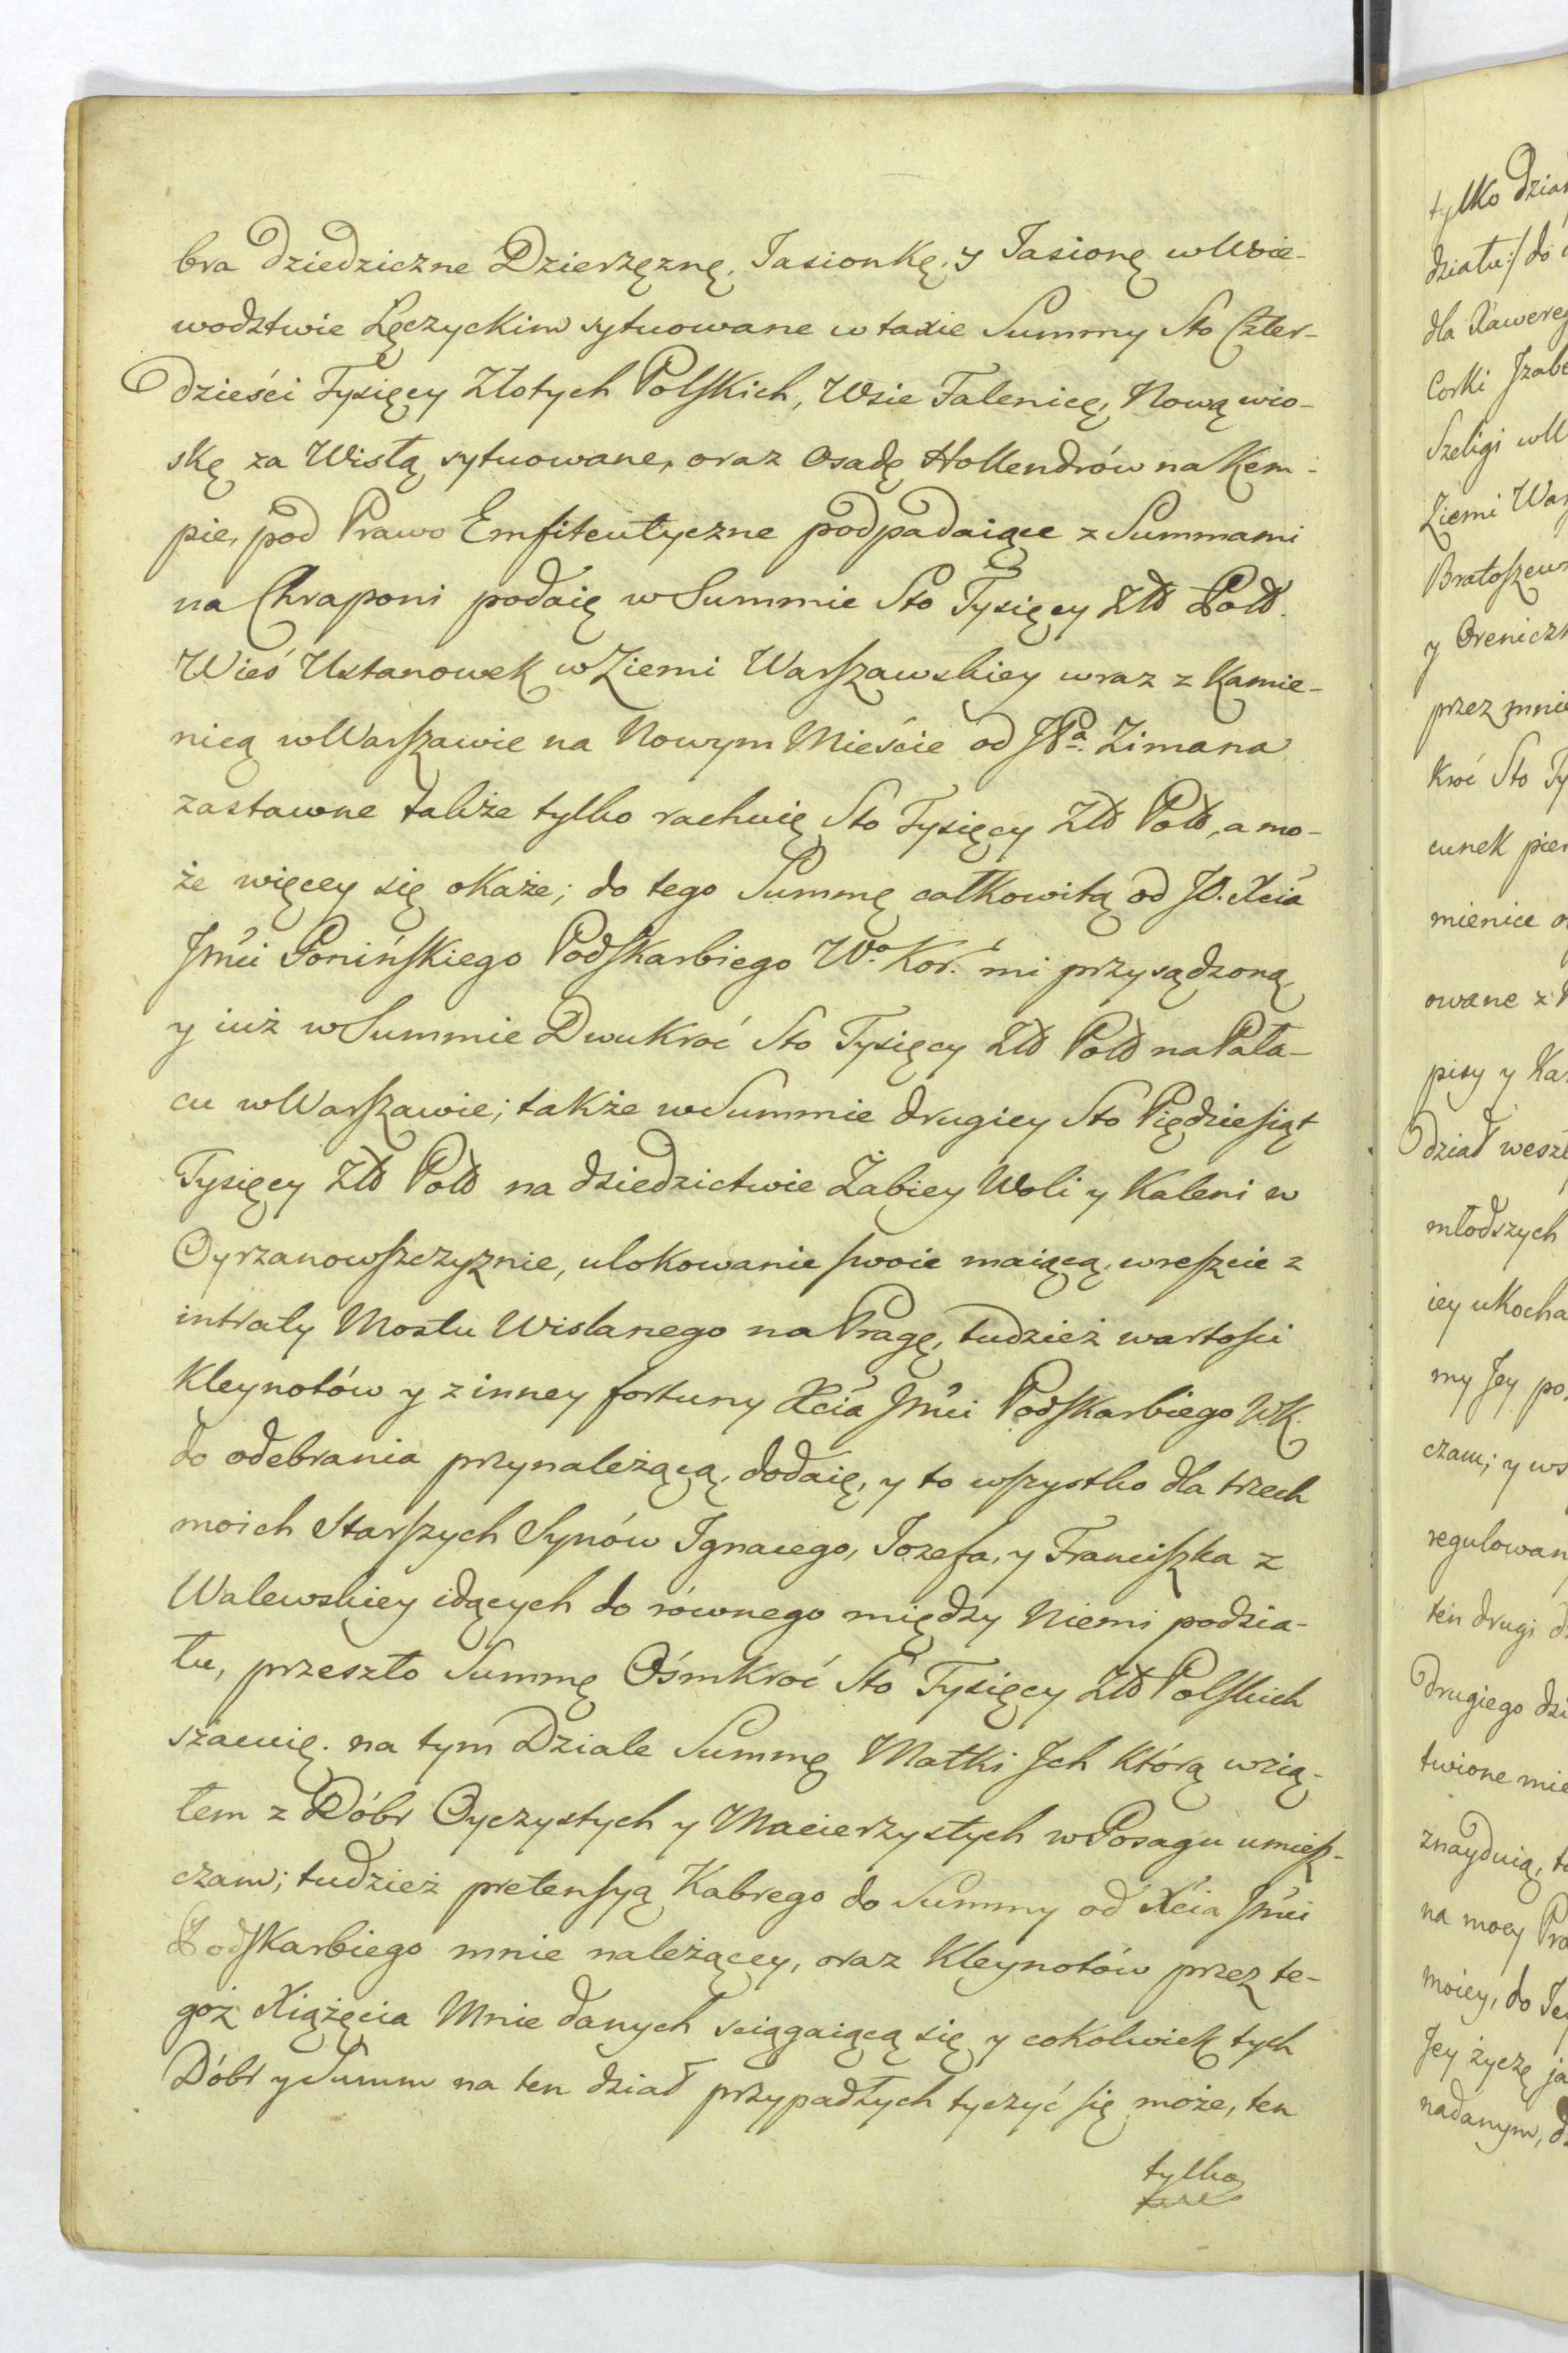 bra Dziedziczne Dzierzęznę, Jasionkę, y Jasionę w Woie-
wodztwie Łęczyckim sytuowane w taxie Summy Sto Czter-
dzieści Tysięcy Złotych Polskich, Wsie Falenicę, Nową wio-
skę za Wisłą sytuowane, oraz Osadę Hollendrów na Kem-
pie, pod Prawo Emfiteutyczne podpadaiące z Summami
na Chraponi podaię w Summie Sto Tysięcy Złł Poll.
Wieś Ustanowek w Ziemi Warszawskiey wraz z Kamie-
nicą w Warszawie na Nowym Mieście od JPa. Zimana
zastawne także tylko rachuię Sto Tysięcy Złł Poll, a mo-
że więcey się okaże; do tego Summę całkowitą od JO. Xcia
Jmci Ponińskiego Podskarbiego Wo. Kor. mi przysądzoną
y iuż w Summie Dwukroć Sto Tysięcy Złł Poll na Pała-
cu w Warszawie; także w Summie drugiey Sto Piędziesiąt
Tysięcy Złł Poll na dziedzictwie Żabiey Woli y Kaleni w
Oyrzanowszczyznie, ulokowanie swoie maiącą, wreszcie z
intraty Mostu Wislanego na Pragę, tudzież wartości
Kleynotów y z inney fortuny Xcia Jmci Podskarbiego WK.
do odebrania przynależącą, dodaię, y to wszystko dla trzech
moich Starszych Synów Ignacego, Jozefa, y Franciszka z
Walewskiey idących do równego między Niemi podzia-
łu, przeszło Summę Ośmkroć Sto Tysięcy Złł Polskich
szacuię. na tym Dziale Summę Matki Jch którą wzią-
łem z Dóbr Oyczystych y Macierzystych w Posagu umiesz-
czam; tudzież pretensyą Kabrego do Summy od Xcia Jmci
Podskarbiego mnie należącey, oraz Kleynotów przez te-
goż Xiążęcia Mnie danych sciągaiącą się y cokolwiek tych
Dóbr y Summ na ten dział przypadłych tyczyć się może, ten
tylko
tylko
działu:/ do
dla Xawere
Corki Jzabe
Szeligi w
Ziemi War
Bratoszew
y Oreniczn
przez mnie
kroć Sto Ty
cunek pier
mienice
owane z
pisy y Ka
dział wesz
młodszych
iey ukocha
my Jey po
czam; y ws
regulowan
ten drugi
drugiego dzi
twione mie
znayduią, t
na mocy Pr
moiey, do Je
Jey życzę ja
nadanym,